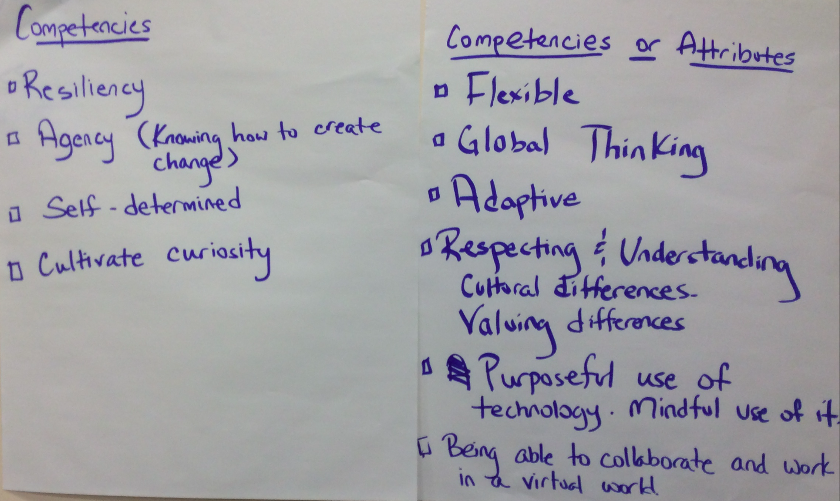 Competencies
Resiliency
Agency (Knowing how to create
change)
Self-determined
Cultivate curiosity
Competencies or Attributes
Flexible
Global Thinking
Adaptive
Respecting & Understanding
Cultural differences.
Valuing differences
Purposeful use of
technology. Mindful use of it.
Being able to collaborate and work
in a virtual world